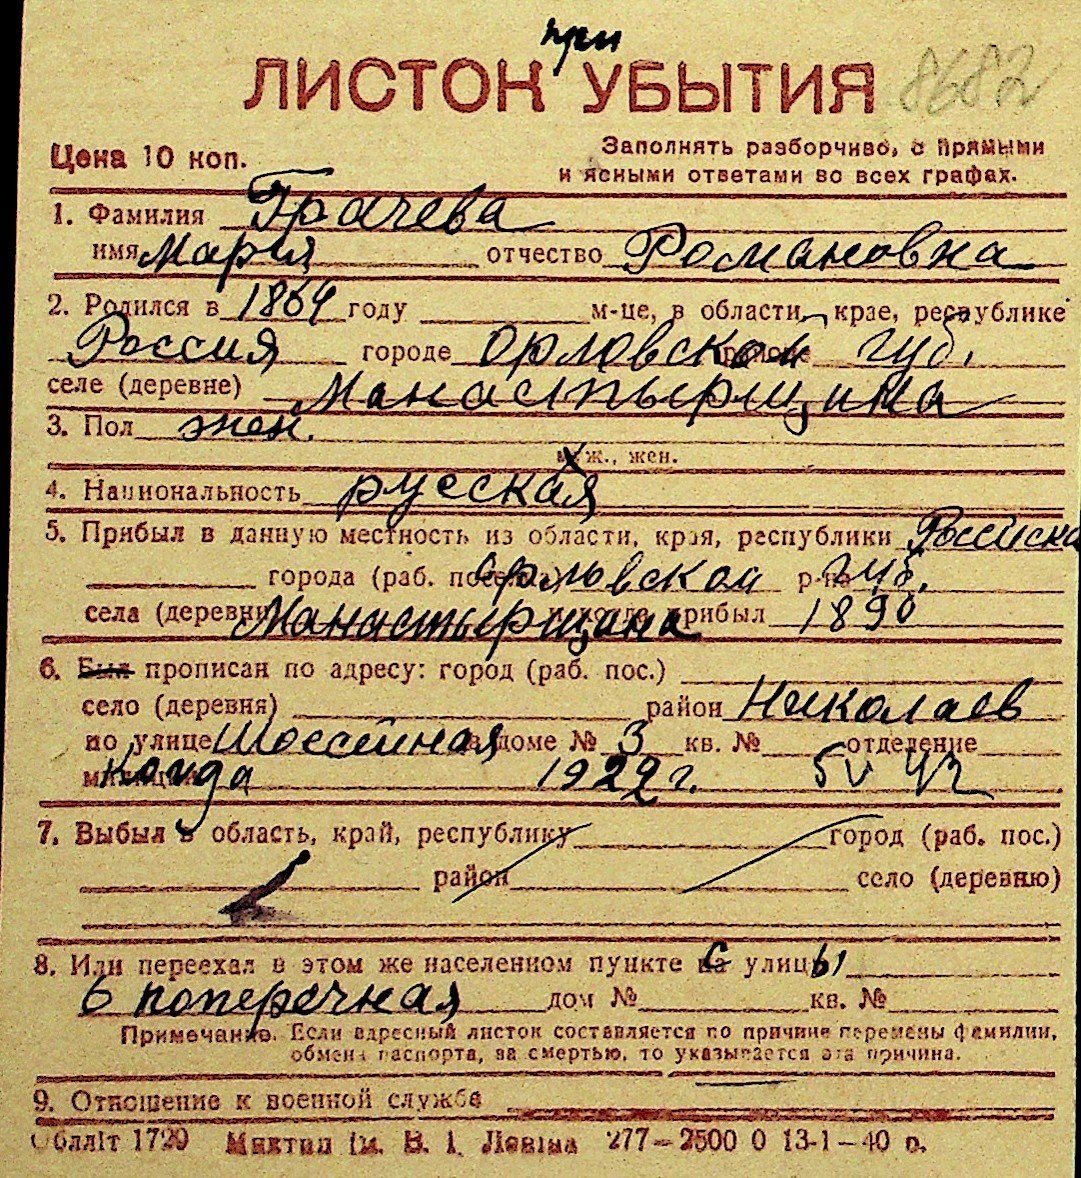 при
ЛИСТОК УБЫТИЯ 8682
Цена 10 коп.
Заполнять разборчиво, с прямыми
и ясными ответами во всех графах.
1. Фамилия Грачева
имя Мария отчество Романовна
2. Родился в 1864 году м-це, в области, крае, республике
Россия городе Орловской районе губ.
селе (деревне) Манастырщина
3. Пол жен.
муж., жен.
4. Национальность русская
5. Прибыл в данную местность из области, края, республики Российска
города (раб. поселка) орловской р-на губ.
села (деревни) Манастырщина когда прибыл 1890
6. Был прописан по адресу: город (раб. пос.)
село (деревня) район Николаев
по улице Шоссейная в доме № 3 кв. № отделение
милиции Когда 1922 г.
7. Выбыл в область, край, республику город (раб. пос.)
район село (деревню)
8. Или переехал в этом же населенном пункте с улицы
6 поперечная дом № кв. №
Примечание. Если адресный листок составляется по причине перемены фамилии,
обмена паспорта, за смертью, то указывается эта причина.
9. Отношение к военной службе
Обллiт 1729 Миктип iм. В. I. Ленiна 277—2500 0 13-1—40 р.